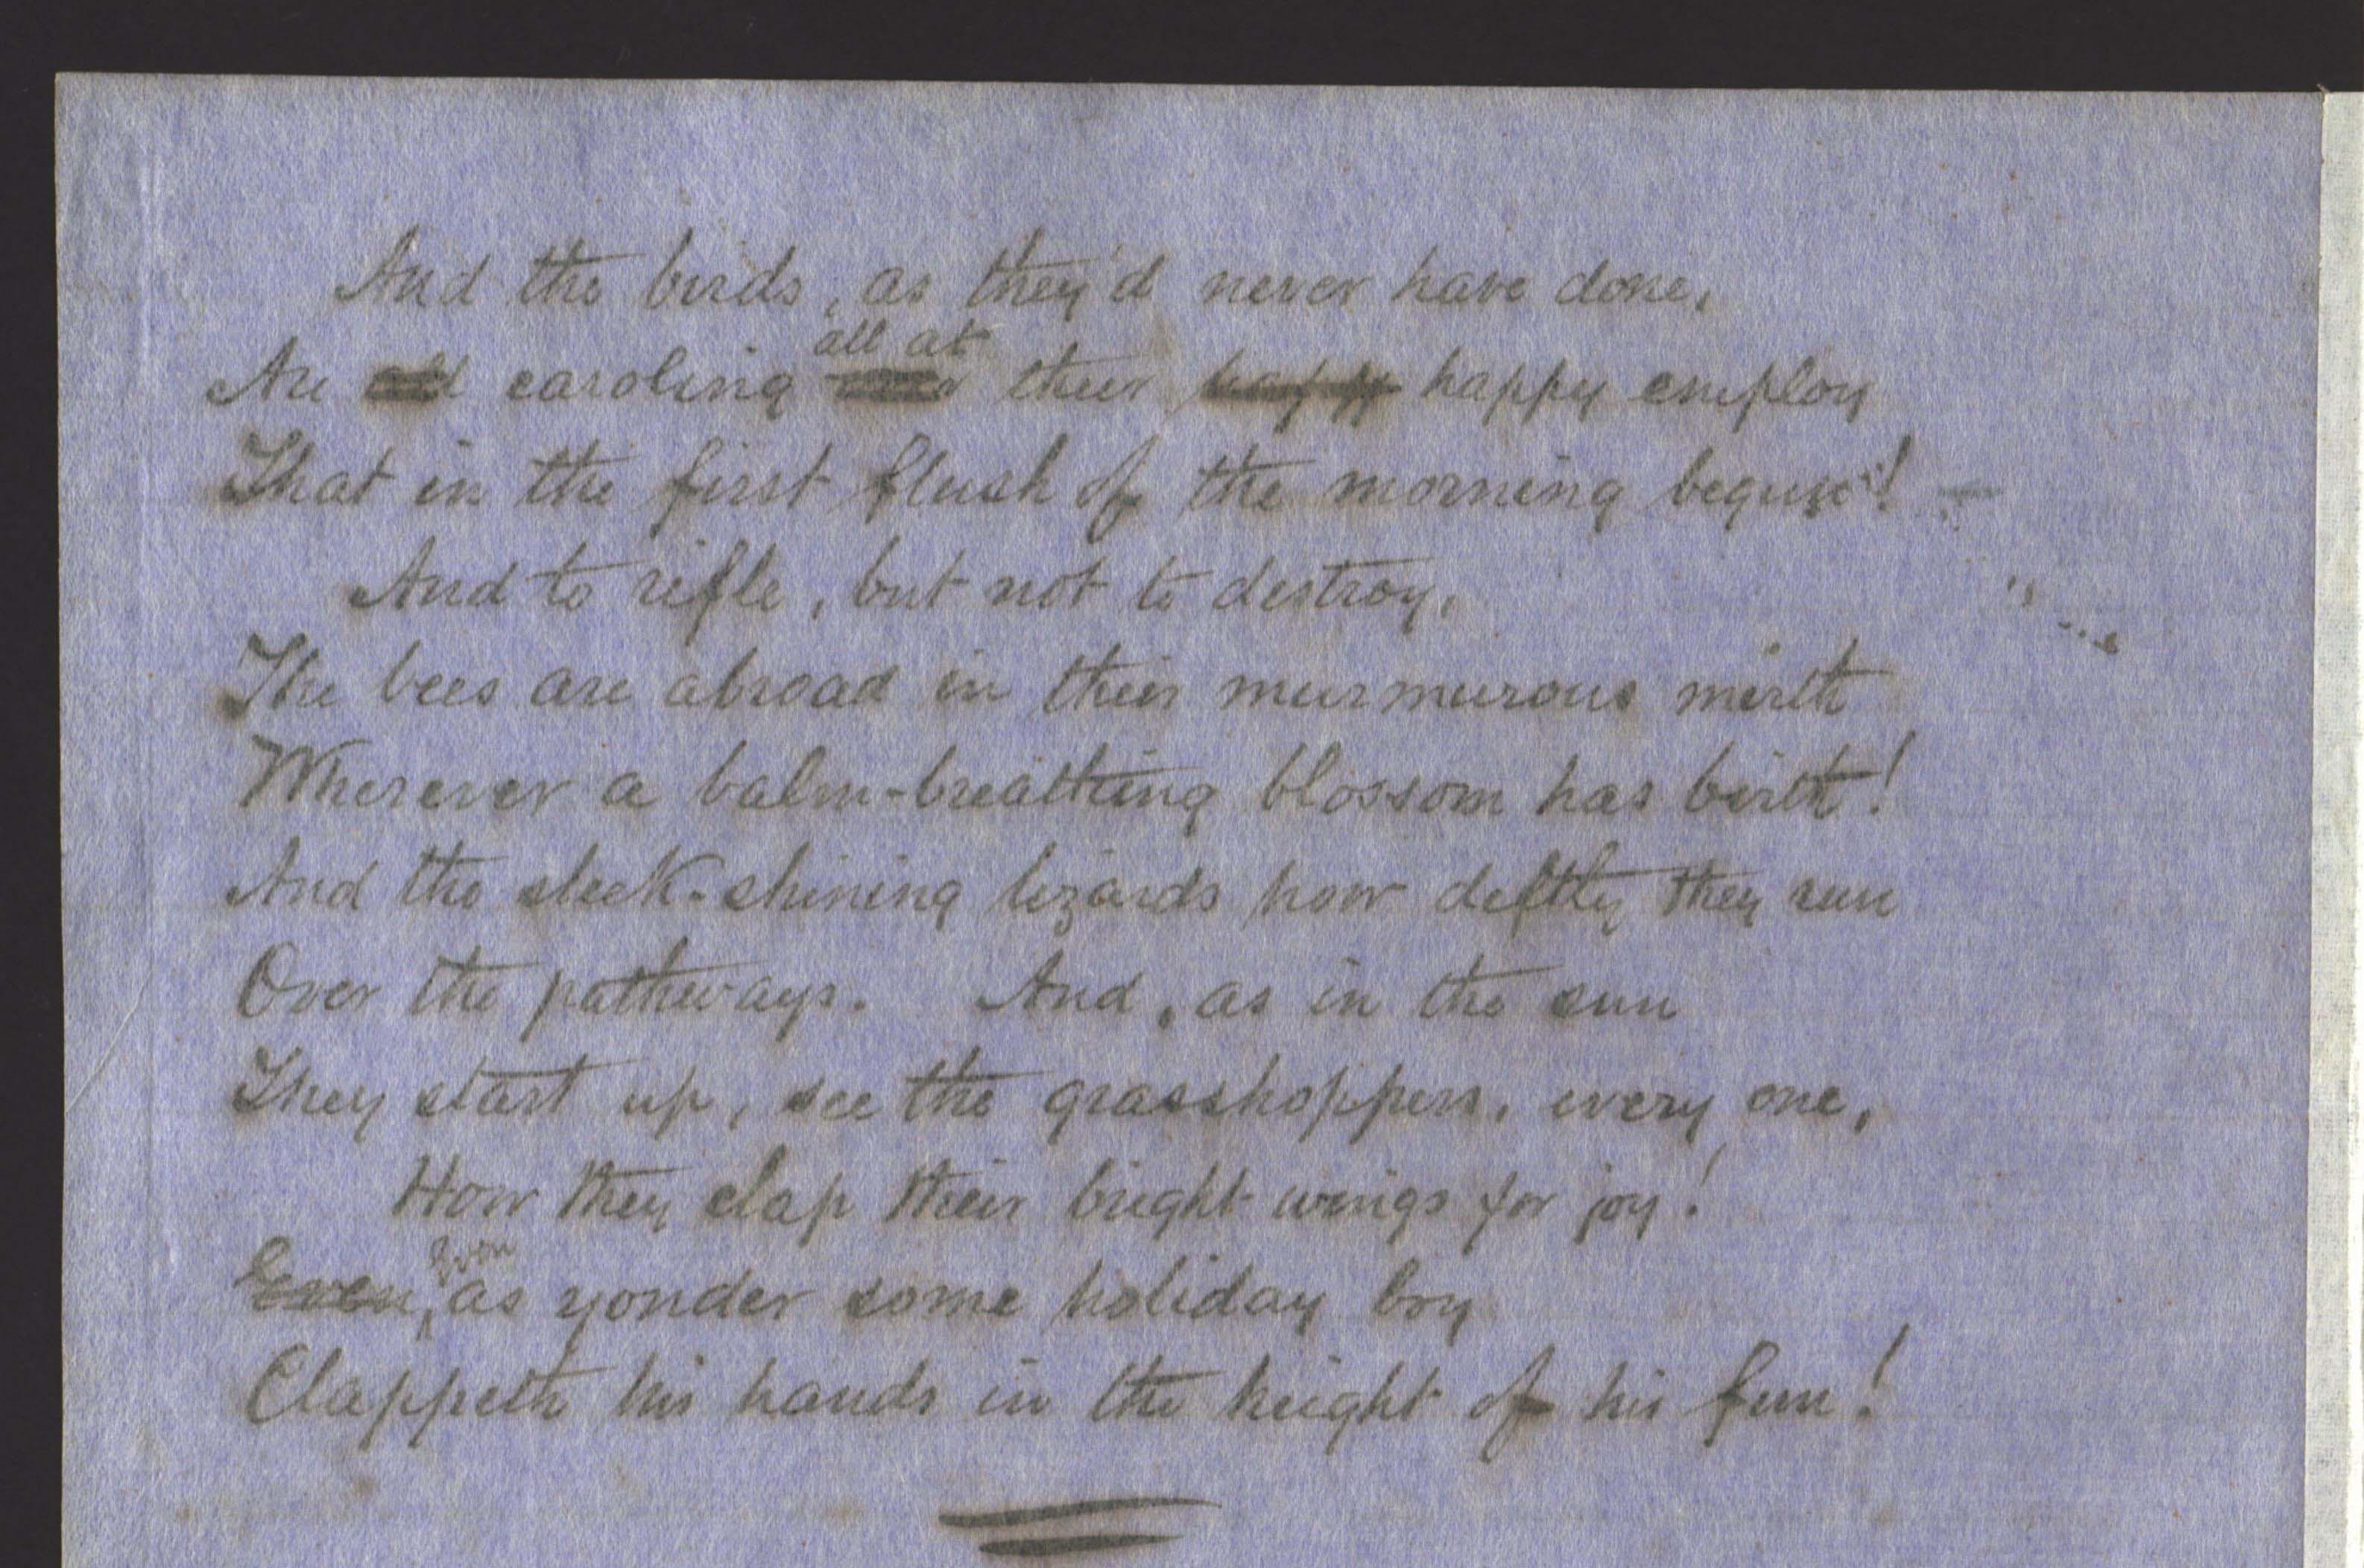 And the birds, as they'd never have done,
all at
Are all caroling over their happy happy employ
That in the first flush of the morning begun! —
And to rifle, but not to destroy,
The bees are abroad in their murmurous mirth
Wherever a balm-breathing blossom has birth!
And the sleek-shining lizards how deftly they run
Over the pathways. And, as in the sun
They start up, see the grasshoppers, every one,
How they clap their bright wings for joy!
Even
Even, as yonder some holiday boy
Clappeth his hands in the height of his fun!